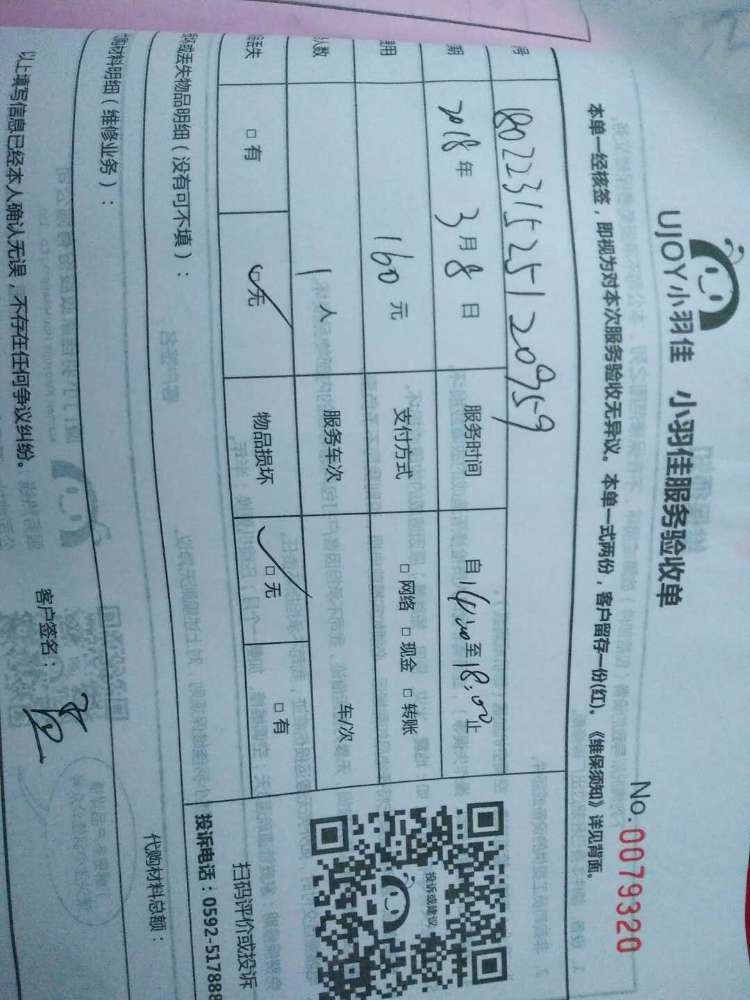 UJOY小羽佳 小羽佳服务验收单
No. 0079320
本单一经核签，即视为对本次服务验收无异议。本单一式两份，客户留存一份(红)。《维保须知》详见背面。
号 1802231525120959
期 2018年3月8日 服务时间 自14:00至18:00止
用 160元 支付方式 □网络 □现金 □转账
人数 1人 服务车次 车/次
丢失 □有 ✓无 物品损坏 ✓□无 □有
投诉或建议
扫码评价或投诉
投诉电话：0592-517888
坏或丢失物品明细（没有可不填）：
购材料明细（维修业务）： 代购材料总额：
以上填写信息已经本人确认无误，不存在任何争议纠纷。 客户签名：